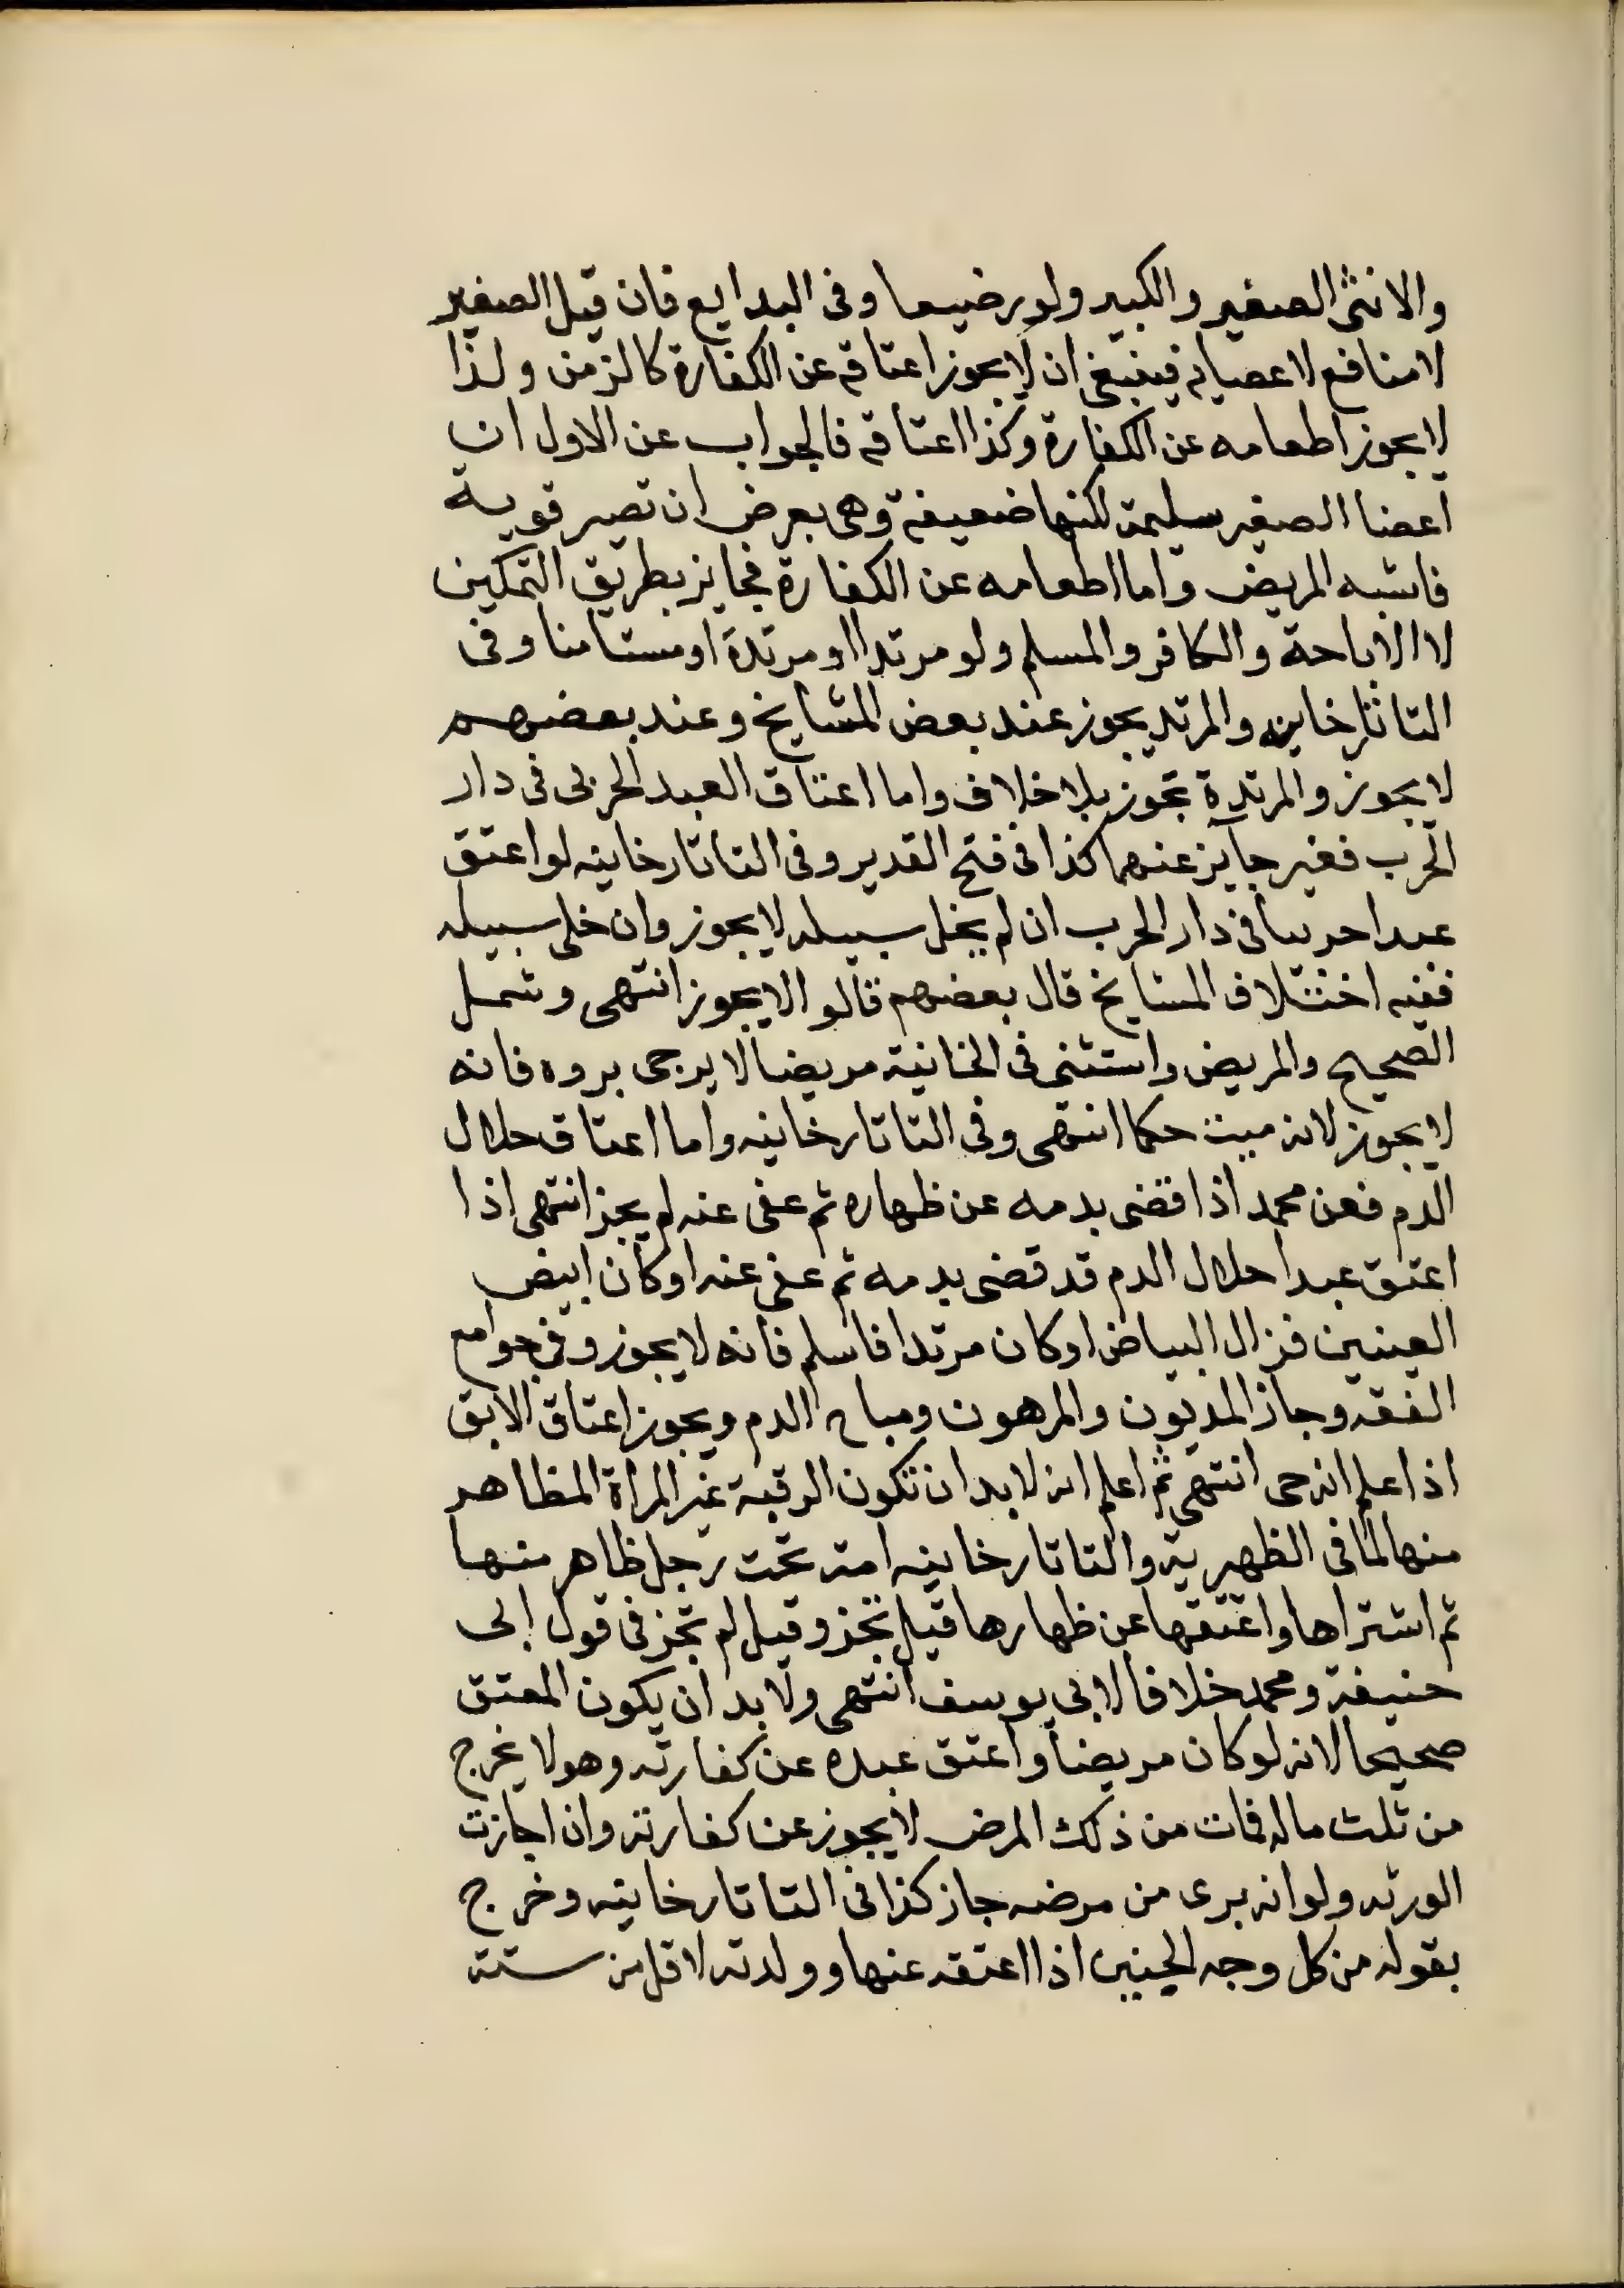 والانثى الصغير والكبير ولو رضيعا وفى البدايع فان قيل الصغير
لا منافع لاعضايه فينبغى ان لا يجوز اعتاقه عن الكفارة كالزمن ولذا
لا يجوز اطعامه عن الكفارة وكذا اعتاقه فالجواب عن الاول ان
اعضا الصغير سليمة لكنها ضعيفة وهى بعرض ان تصير قوية
فاشبه المريض واما اطعامه عن الكفارة فجايز بطريق التمكين
لا الاباحة والكافر والمسلم ولو مرتدا او مرتدة او مستامنا وفى
التاتارخاينه والمرتد يجوز عند بعض المشايخ وعند بعضهم
لا يجوز والمرتدة تجوز بلا خلاف واما اعتاق العبد الحربى فى دار
الحرب فغير جايز عنهما كذا فى فتح القدير وفى التاتارخاينه لو اعتق
عبدا حربيا فى دار الحرب ان لم يخل سبيله لا يجوز وان خلى سبيله
ففيه اختلاف المشايخ قال بعضهم قالوا لا يجوز انتهى وشمل
الصحيح والمريض واستثنى فى الخانية مريضا لا يرجى بروه فانه
لا يجوز لانه ميت حكما انتهى وفى التاتارخاينه واما اعتاق حلال
الدم فعن محمد اذا قضى بدمه عن ظهاره ثم عفى عنه لم يجز انتهى اذا
اعتق عبدا حلال الدم قد قضى بدمه ثم عفى عنه او كان ابيض
العينين فزال البياض او كان مرتدا فاسلم فانه لا يجوز وفى جوامع
الفقه وجاز المديون والمرهون ومباح الدم ويجوز اعتاق الابق
اذا علم انه حى انتهى ثم اعلم انه لا بد ان تكون الرقبة غير المراة المظاهر
منها لما فى الظهيرية والتاتارخاينه امة تحت رجل ظاهر منها
ثم اشتراها واعتقها عن ظهارها قيل تجز وقيل لم تجز فى قول ابى
حنيفة ومحمد خلافا لابى يوسف انتهى ولا بد ان يكون المعتق
صحيحا لانه لو كان مريضا واعتق عبده عن كفارته وهو لا يخرج
من ثلث ماله فمات من ذلك المرض لا يجوز عن كفارته وان اجازت
الورثه ولو انه برى من مرضه جاز كذا فى التاتارخاينه وخرج
بقوله من كل وجه الجنين اذا اعتقه عنها وولدته لاقل من ستة